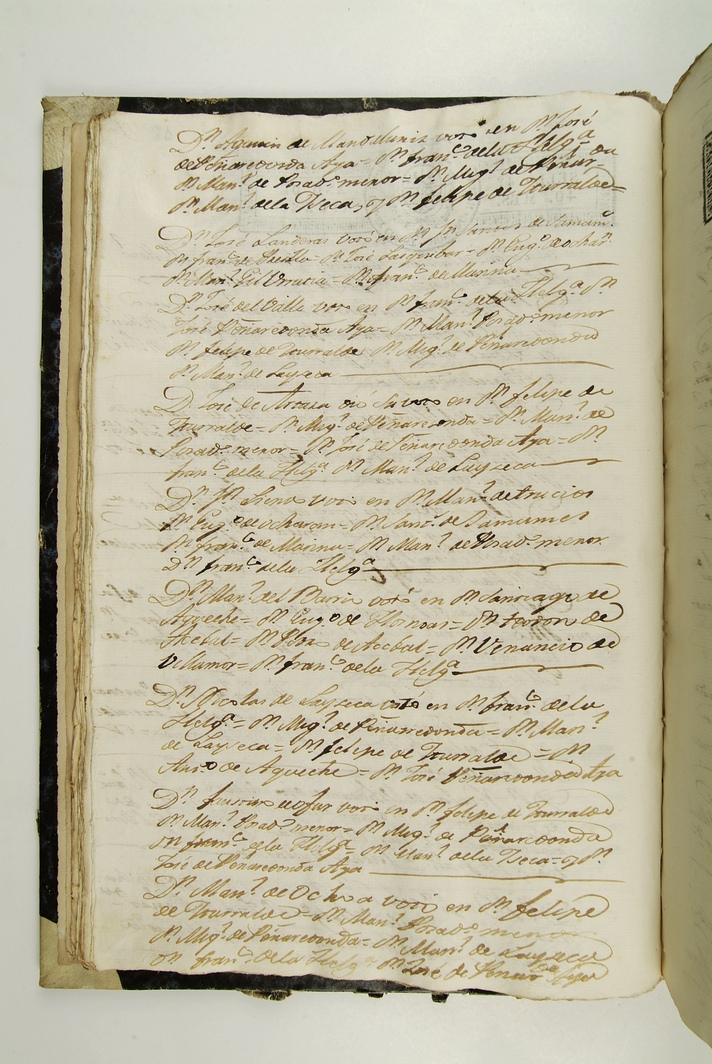 Dn. Agustin de Mandaluniz votó en Dn. José
de Peñarredonda Aya= Dn. franco. de la Helga
Dn. Manl. de Posad. menor= Dn. Migl. de Peñar-
Dn. Manl. de la Teca, y Dn. felipe de Tourralde=
Dn. José Landeras votó en Dn.
Dn. franco. de = Dn. José = Dn. Eugo. de Ocharn.
Dn. Manl. Gil Urrutia= Dn. franco. de Marina
Dn. José del Valle votó en Dn. franco. de la Helga. Dn.
José Peñarredonda Aya= Dn. Manl. Posad. menor
Dn. felipe de Tourralde Dn. Migl. de Peñarredonda
Dn. Manl. de Layseca
Dn. José de votó en Dn. felipe de
Tourralde= Dn. Migl. de Peñarredonda= Dn. Manl. de
Posad. menor= Dn. José de Peñarredonda Aya= Dn.
franco. de la Helga. Dn. Manl. de Layseca
Dn. votó en Dn. Manl. de trucios
Dn. Eugo. de Ocharan= Dn. Santos de Samames
Dn. franco. de Marina= Dn. Manl. de Posad. menor
Dn. franco. de la Helga
Dn. Manl. del Barrio votó en Dn. Santiago de
Aqueche= Dn. Eugo. de Hornoas= Dn. teodoro de
Acebal= Dn. de Acebal= Dn. Venancio de
Villamor= Dn. franco. de la Helga
Dn. Nicolas de Layseca votó en Dn. franco. de la
Helga.= Dn. Migl. de Peñarredonda= Dn. Manl.
de Layseca= Dn. felipe de Tourralde= Dn.
Anto. de Aqueche= Dn. José Peñarredonda Aya
Dn. votó en Dn. felipe de Tourralde
Dn. Manl. Posad. menor= Dn. Migl. de Peñarredonda
Dn. franco. de la Helga= Dn. Manl. de la Teca= y Dn.
José de Peñarredonda Aya
Dn. Manl. de Ochoa votó en Dn. felipe
de Tourralde= Dn. Manl. Posad. menor
Dn. Migl. de Peñarredonda= Dn. Manl. de Layseca
Dn. franco. de la Helga Dn. José de Peñarda. Aya